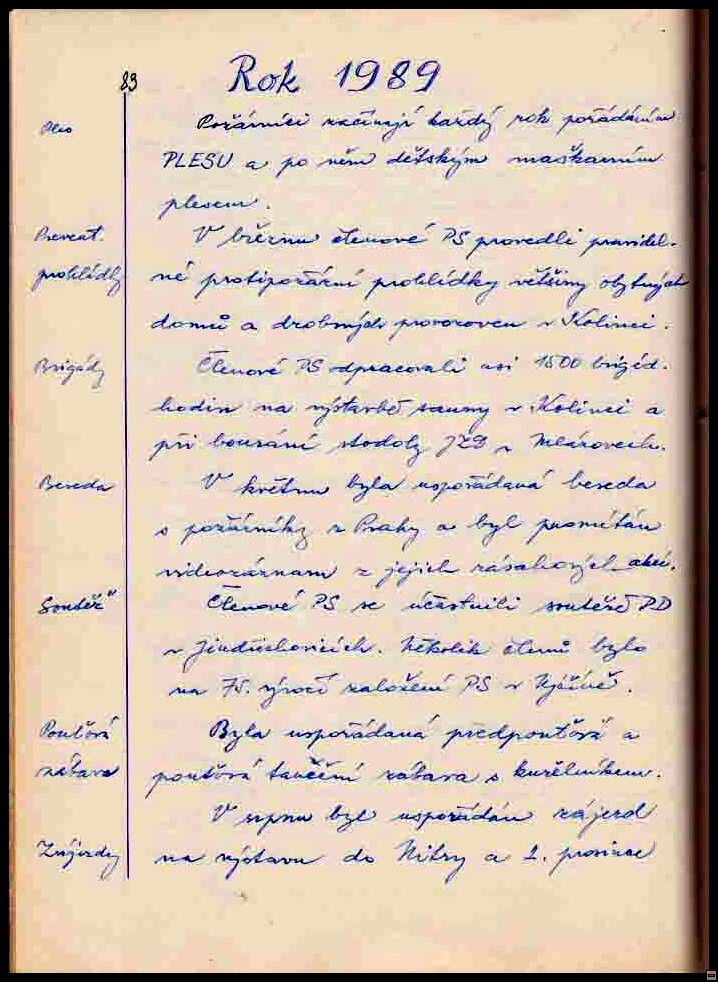 83
Rok 1989
Ples
Požárníci začínají každý rok pořádáním
PLESU a po něm dětským maškarním
plesem.
Prevent.
V březnu členové PS provedli pravidel-
prohlídky
né protipožární prohlídky většiny obytných
domů a drobných provozoven v Kolinci.
Brigády
Členové PS odpracovali asi 1500 brigád.
hodin na výstavbě sauny v Kolinci a
při bourání stodoly JZD v Mlázovech.
Beseda
V květnu byla uspořádaná beseda
s požárníky z Prahy a byl promítán
videozáznam z jejich zásahových akcí.
Soutěž
Členové PS se účastnili soutěže PD
v Jindřichovicích. Několik členů bylo
na 75. výročí založení PS v
Pouťová
Byla uspořádaná předpouťová a
zábava
pouťová taneční zábava s kuželníkem.
V srpnu byl uspořádán zájezd
Zájezdy
na výstavu do Nitry a 2. prosince